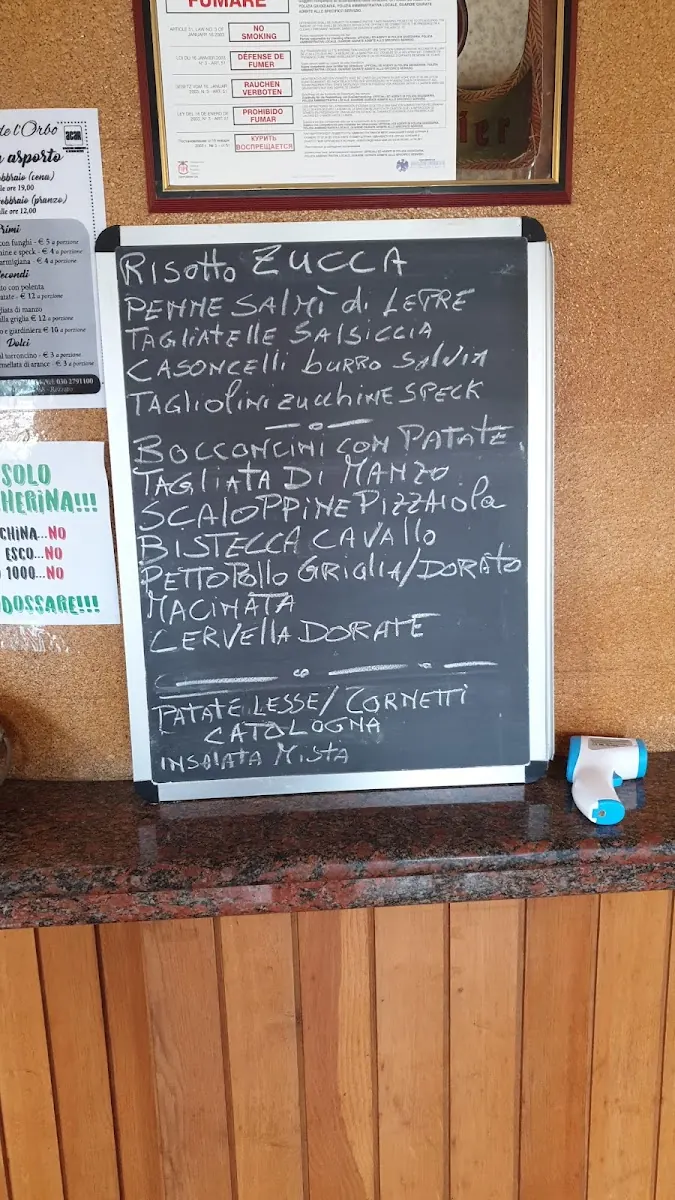 FUMARE
ARTICLE 51, LAW NO. 3 OF
JANUARY 16 2003
NO
SMOKING
DÉFENSE DE
FUMER
RAUCHEN
VERBOTEN
PROHIBIDO
FUMAR
КУРИТЬ
ВОСПРЕЩАЕТСЯ
te l'Orbo
asporto
ebbraio (cena)
lle ore 19,00
ebbraio (pranzo)
lle ore 12,00
rimi
con funghi - € 5 a porzione
ine e speck - € 4 a porzione
armigiana - € 4 a porzione
econdi
to con polenta
atate - € 12 a porzione
gliata di manzo
alla griglia € 12 a porzione
o e giardiniera € 10 a porzione
Dolci
al torroncino - € 3 a porzione
mellata di arance - € 3 a porzione
030 2791100
SOLO
HERINA!!!
CHINA...NO
ESCO...NO
1000...NO
DOSSARE!!!
RISOTTO ZUCCA
PENNE SALMÌ di LEPRE
TAGLIATELLE SALSICCIA
CASONCELLI burro SALVIA
TAGLIOLINI ZUCCHINE SPECK
BOCCONCINI CON PATATE
TAGLIATA DI MANZO
SCALOPPINE PIZZAIOLA
BISTECCA CAVALLO
PETTO POLLO GRIGLIA/DORATO
MACINATA
CERVELLA DORATE
PATATE LESSE/CORNETTI
CATOLOGNA
INSALATA MISTA